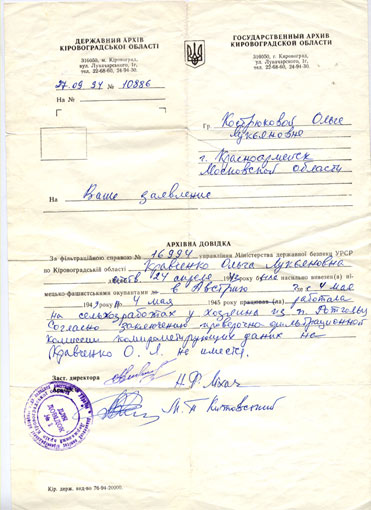 ДЕРЖАВНИЙ АРХІВ
КІРОВОГРАДСЬКОЇ ОБЛАСТІ
316050, м. Кіровоград,
вул. Луначарського, 1г,
тел. 22-68-60, 24-94-30.
ГОСУДАРСТВЕННЫЙ АРХИВ
КИРОВОГРАДСКОЙ ОБЛАСТИ
316050, г. Кировоград,
ул. Луначарского, 1г,
тел. 22-68-60, 24-94-30.
27.09.94 № 10886
На №
Гр. Кострюковой Ольге
Лукьяновне
г. Красноармейск
Московской области
На Ваше заявление
АРХІВНА ДОВІДКА
За фільтраційною справою № 16994 управління Міністерства державної безпеки УРСР
по Кіровоградській області Кравченко Ольга Лукьяновна
24 апреля насильно вивезен(а) ні-
мецько-фашистськими окупантами в Австрию 4 мая
194 по 4 мая 1945 року працював (ла) работала
на сельхозработах у хозяина из п.
Согласно заключению проверочно-фильтрационной
комиссии компрометирующих данных на
Кравченко О. Л. не имеется.
Заст. директора
Н.Ф.
М.П. Китовский
Кір. держ. вид-во 76-94-20000.